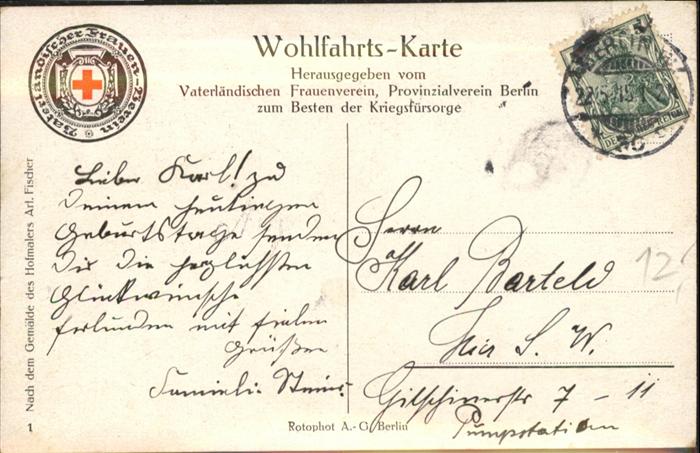 Vaterländischer Frauen-Verein
Wohlfahrts-Karte
Herausgegeben vom
Vaterländischen Frauenverein, Provinzialverein Berlin
zum Besten der Kriegsfürsorge
BERLIN
Lieber Karl! zu
Deinem heutigen
Geburtstage senden
Dir die herzlichsten
Glückwünsche
verbunden mit fielen
Grüßen
Familie
Herrn
Karl Barteld
Hier S. W.
Gitschinerstr 7 - 11
Pumpstation
12,
Nach dem Gemälde des Hofmalers Arl. Fischer
1
Rotophot A.-G. Berlin